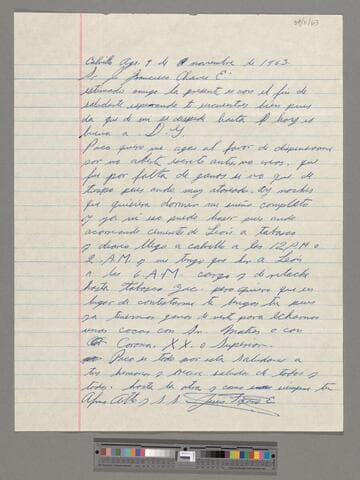 Calvillo Ags. 9 de noviembre de 1963
Sr. Francisco Chavez E.
estimado amigo la presente es con el fin de
saludarte esperando te encuentres bien pues
da que de mi se despide hasta hoy es
buena a D. G.
Paco quiero me agas el favor de dispensarme
por no aberte escrito antes, no creas, que
fue por falta de ganas si no que de
tiempo pues ando muy atareado, hay noches
que quisiera dormir mi sueño completo
y ya ni eso puedo hacer pues ando
acarreando cemento de León a tabasco
y diario llego a calvillo a las 12 P.M. o
2. A.M. y me tengo que ir a León
a las 6. A.M. cargo y de rebote
hasta Tabasco Zac. pero quiero que en
lugar de contestarme te bengas tu pues
ya tenemos ganas de verte para echarnos
unas cocas con Sn. Matias o con
Corona. XX. o Superior.
Paco es todo por esta saludame a
tus hermanos y Mara saluda de todos y
todos. hasta la otra y como siempre tu
Afmo Atto y S.S.